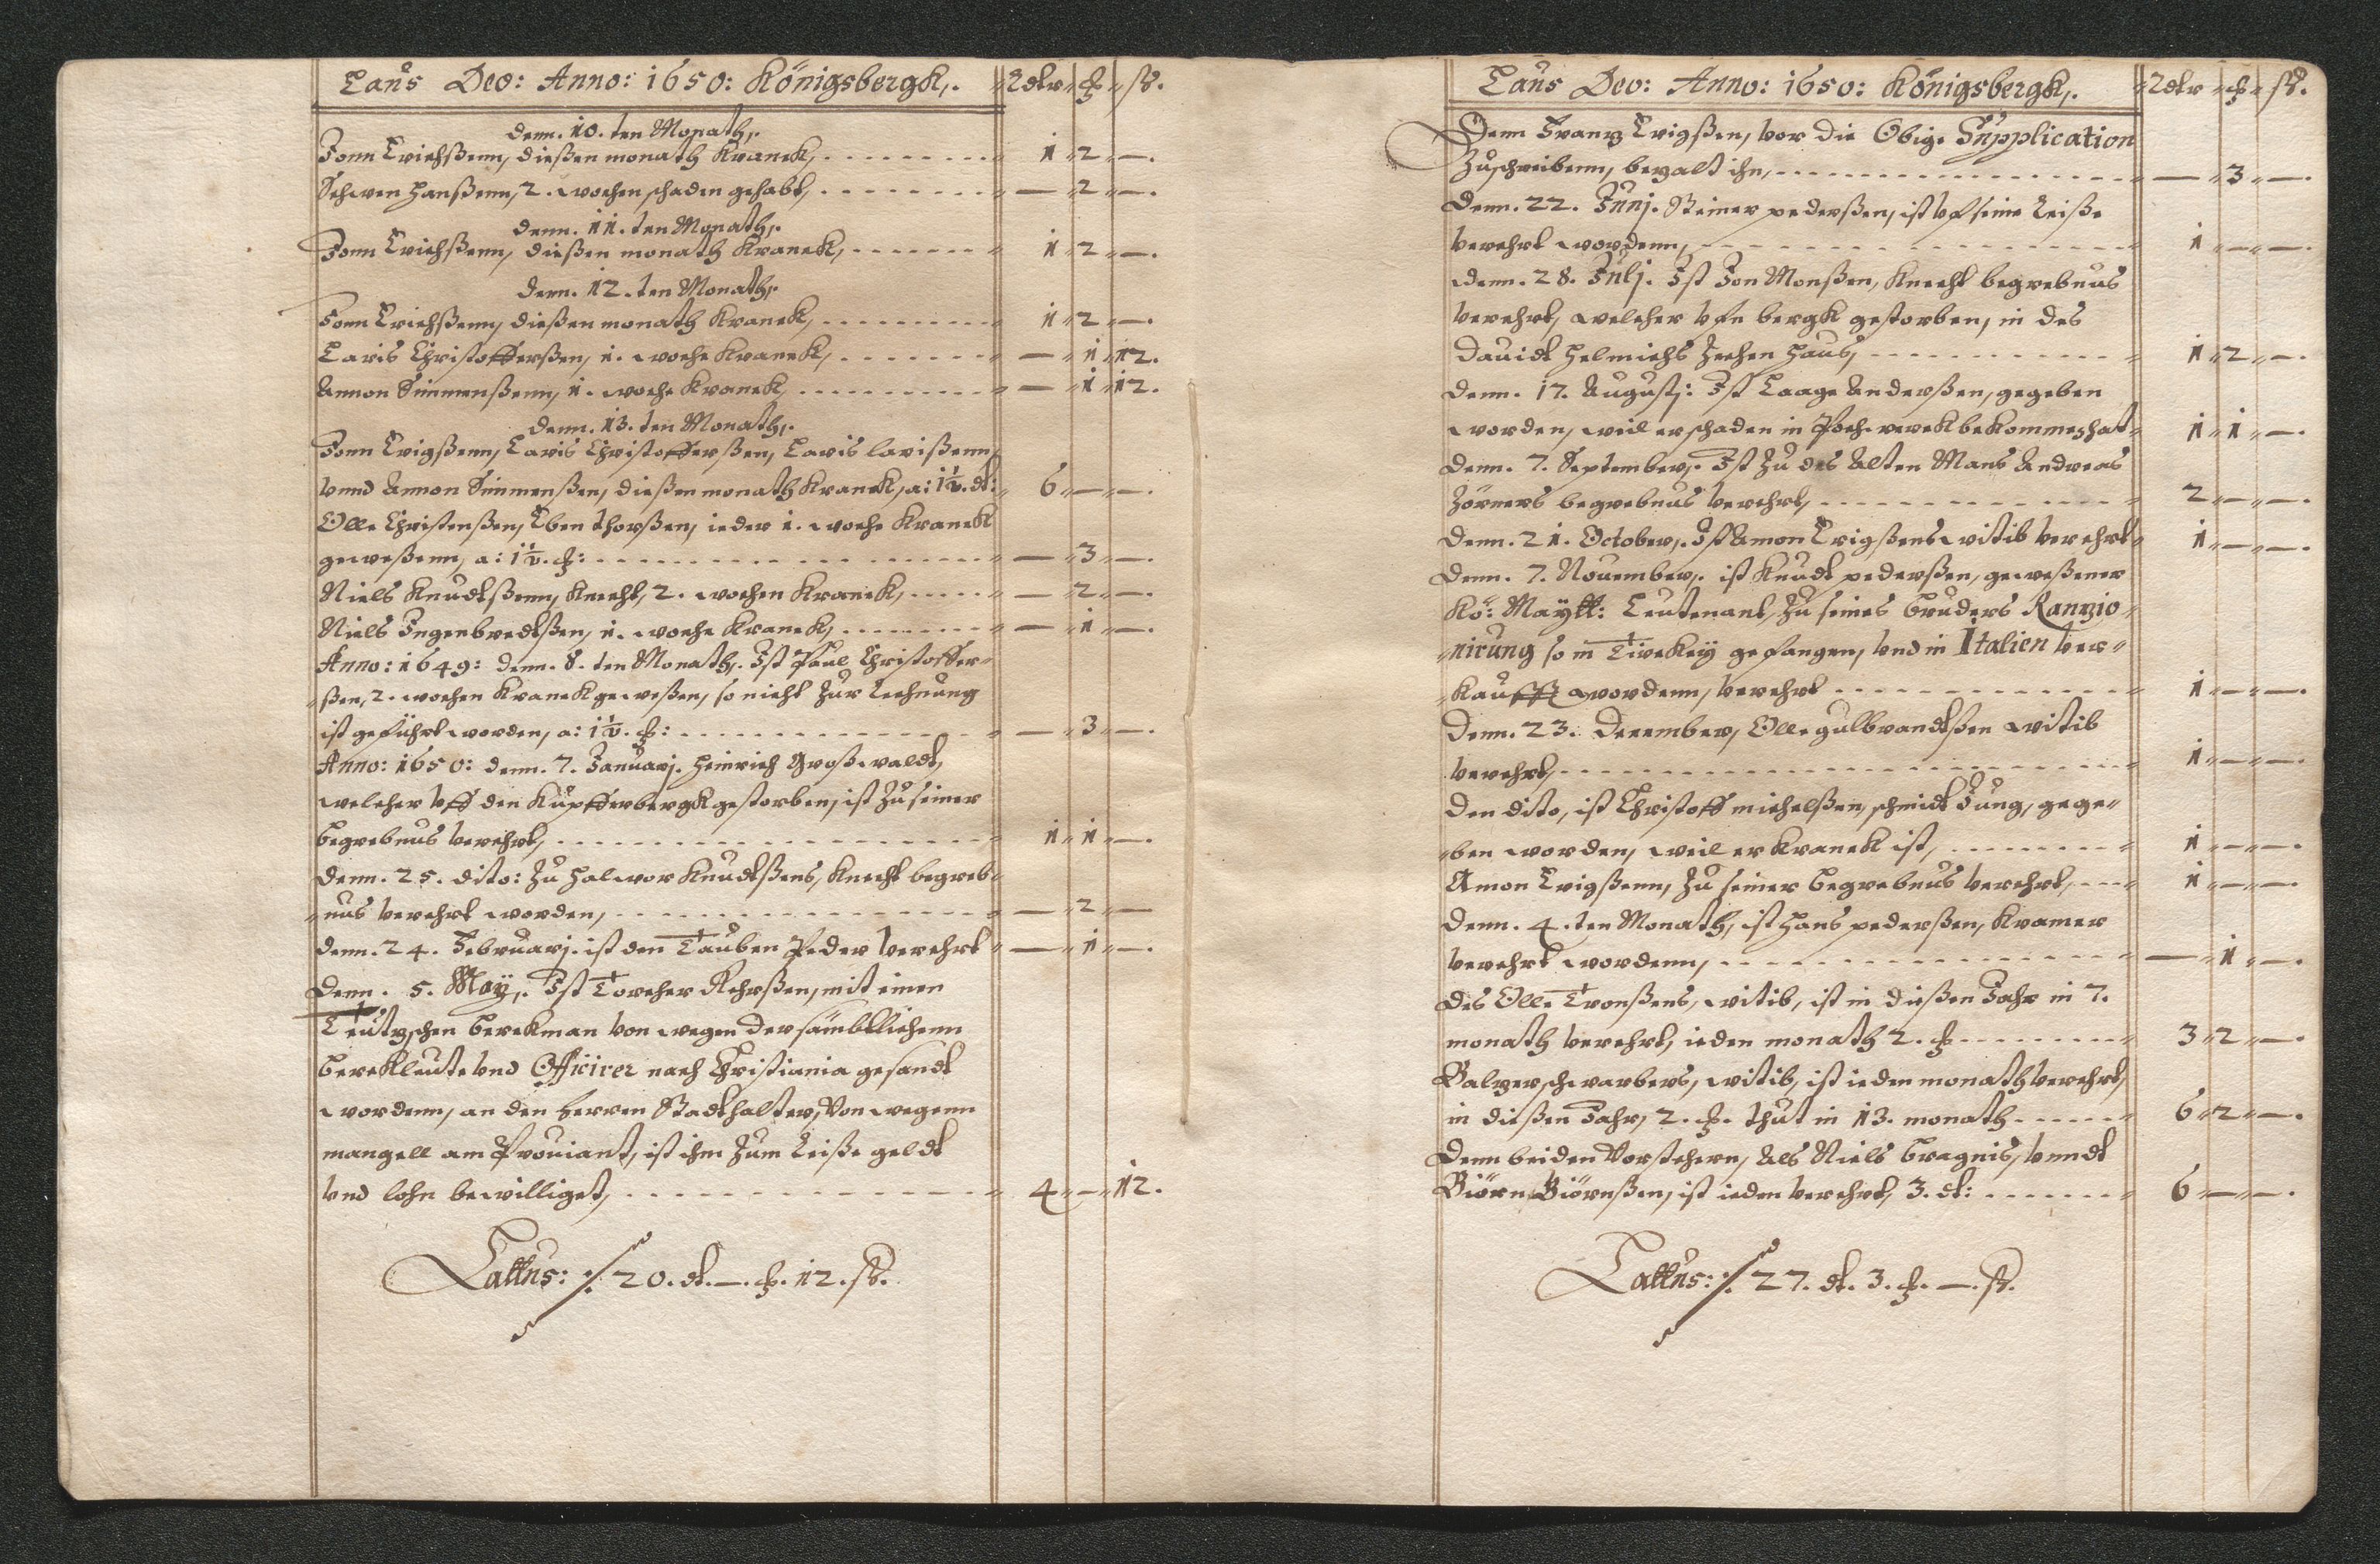 Laus Deo: Anno: 1650: Königsbergk,. Rdlr ȼ ß.
Denn. 10. ten Monath,.
Jonn Erichßenn, dießen monath Kranck, 1 2 —.
Schwen Hanßenn, 2. wochen schaden gehabt, — 2 —.
Denn. 11. ten Monath,.
Jonn Erichßenn, dießen monath Kranck, 1 2 —.
Denn. 12. ten Monath,.
Jonn Erichßenn, dießen monath Kranck, 1 2 —.
Laris Christofferßen, 1. woche Kranck, — 1 12.
Amon Simmenßenn, 1. woche Kranck, — 1 12.
Denn. 13. ten Monath,.
Jonn Erigßenn, Laris Christofferßen, Laris larißenn,
vnnd Amon Simmenßen, dießen monath Kranck, a: 1½. dl: 6 — —.
Olle Christenßen, Eben thorßen, ieder 1. woche Kranck
geweßenn, a: 1½. ȼ: — 3 —.
Niels Knudtßenn, Knecht, 2. wochen Kranck, — 2 —.
Niels Ingenbredtßen, 1. woche Kranck, — 1 —.
Anno: 1649: denn. 8. ten Monath,. Ist Paul Christoffer-
ßen, 2. wochen Kranck geweßen, so nicht zur Rechnung
ist geführt worden, a: 1½. ȼ: — 3 —.
Anno: 1650: denn. 7. Januarj. Heinrich Großwaldt,
welcher vff den Kupfferbergk gestorben, ist zu seiner
Begrebnus verehrt, 1 1 —.
Denn. 25. dito: zu Halwor Knudtßens, Knecht begreb-
nus verehrt worden, — 2 —
Denn. 24. Februarj. ist den Tauben Peder verehrt — 1 —.
Denn. 5. May,. Ist Torcher Rehrßen, mit einen
Teutzschen Berckman von wegen der sämbtlichenn
Berckleute vnd Officirer nach Christiania gesandt
wordenn, an den herren Stadthalter, Von wegenn
mangell am Prouiant, ist ihm zum Reiße geldt
vnd lohn bewilliget, 4 — 12.
Lattus: ./. 20. dl. —. ȼ. 12. ß.
Laus Deo: Anno: 1650: Königsbergk,. Rdlr ȼ ß.
Denn Frantz Erigßen, vor die Obige Supplication
zuschreibenn, bezalt ihn, — 3 —.
Denn. 22. Junj. Steiner pederßen, ist vf seine Reiße
verehrt wordenn, 1 — —.
Denn. 28. Julj. Ist Jon Monßen, Knecht begrebnus
verehrt, welcher vfn bergk gestorben, in des
Dauidt Helmichs Zechen Haus, 1 2 —.
Denn. 17. Augustj: Ist Laage Anderßen, gegeben
worden, weil er schaden in Pochwerck bekommeshat 1 1 —.
Denn. 7. September,. Ist zu des Alten Mans Andreas
Zörners begrebnus verehrt, 2 — —.
Denn. 21. October,. Ist Amon Erigßens witib verehrt 1 — —.
Denn. 7. Nouember,. ist Knudt pederßen, geweßener
Kö: Maytt: Leutenant, zu seines bruders Ranzio-
nirung so in Türckey gefangen, vnd in Italien ver-
kaufft wordenn, verehrt 1 — —.
Denn. 23. December, Olle gulbrandtßen witib
verehrt, 1 — —.
Den dito, ist Christoff michelßen, schmidt Jung, gege-
ben worden, weil er Kranck ist, 1 — —.
Amon Erigßenn, zu seiner begrebnus verehrt, 1 — —.
Denn. 4. ten Monath, ist Hans pederßen, Kramer
verehrt wordenn, — 1 —.
Des Olle Tronßens, witib, ist in dießen Jahr in 7.
monath verehrt, ieden monath 2. ȼ 3 2 —.
Balzer schwarbers, witib, ist ieden monath verehrt,
in dießen Jahr, 2. ȼ. thut in 13. monath 6 2 —.
Denn beiden Vorstehern, Als Niels bragnis, vnndt
Biörn Biörnßen, ist ieden verehrt, 3. dl: 6 — —.
Lattus: ./. 27. dl. 3. ȼ. —. ß.